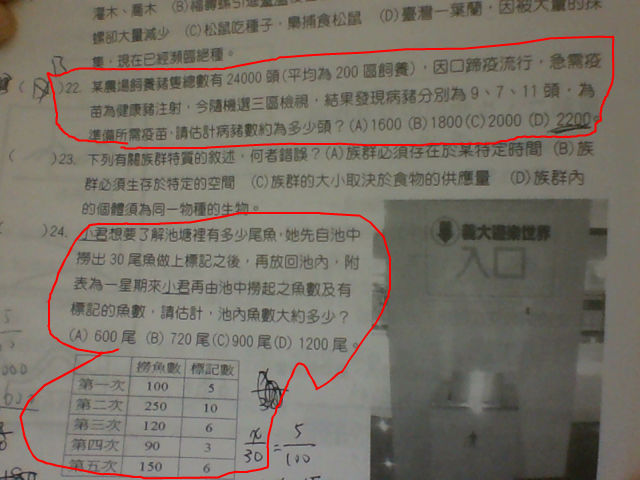 灌木、喬木 (B)福壽螺引進臺灣後
螺卻大量減少 (C)松鼠吃種子，梟捕食松鼠 (D)臺灣一葉蘭，因被大量的採
集，現在已經瀕臨絕種。
B
( )22. 某農場飼養豬隻總數有 24000 頭(平均為 200 區飼養)，因口蹄疫流行，急需疫
苗為健康豬注射，今隨機選三區檢視，結果發現病豬分別為 9、7、11 頭，為
準備所需疫苗，請估計病豬數約為多少頭？(A)1600 (B)1800(C)2000 (D) 2200。
( )23. 下列有關族群特質的敘述，何者錯誤？(A)族群必須存在於某特定時間 (B)族
群必須生存於特定的空間 (C)族群的大小取決於食物的供應量 (D)族群內
的個體須為同一物種的生物。
)24. 小君想要了解池塘裡有多少尾魚，她先自池中
撈出 30 尾魚做上標記之後，再放回池內，附
表為一星期來小君再由池中撈起之魚數及有
標記的魚數，請估計，池內魚數大約多少？
(A) 600 尾 (B) 720 尾(C)900 尾(D) 1200 尾。
撈魚數 標記數
第一次 100 5
第二次 250 10
第三次 120 6
第四次 90 3
第五次 150 6
x/30 = 5/100
義大遊樂世界
入口